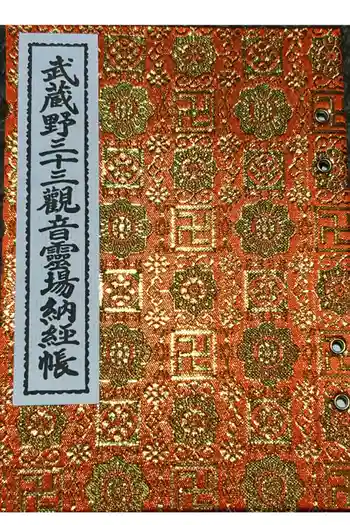 武蔵野三十三觀音霊場納経帳